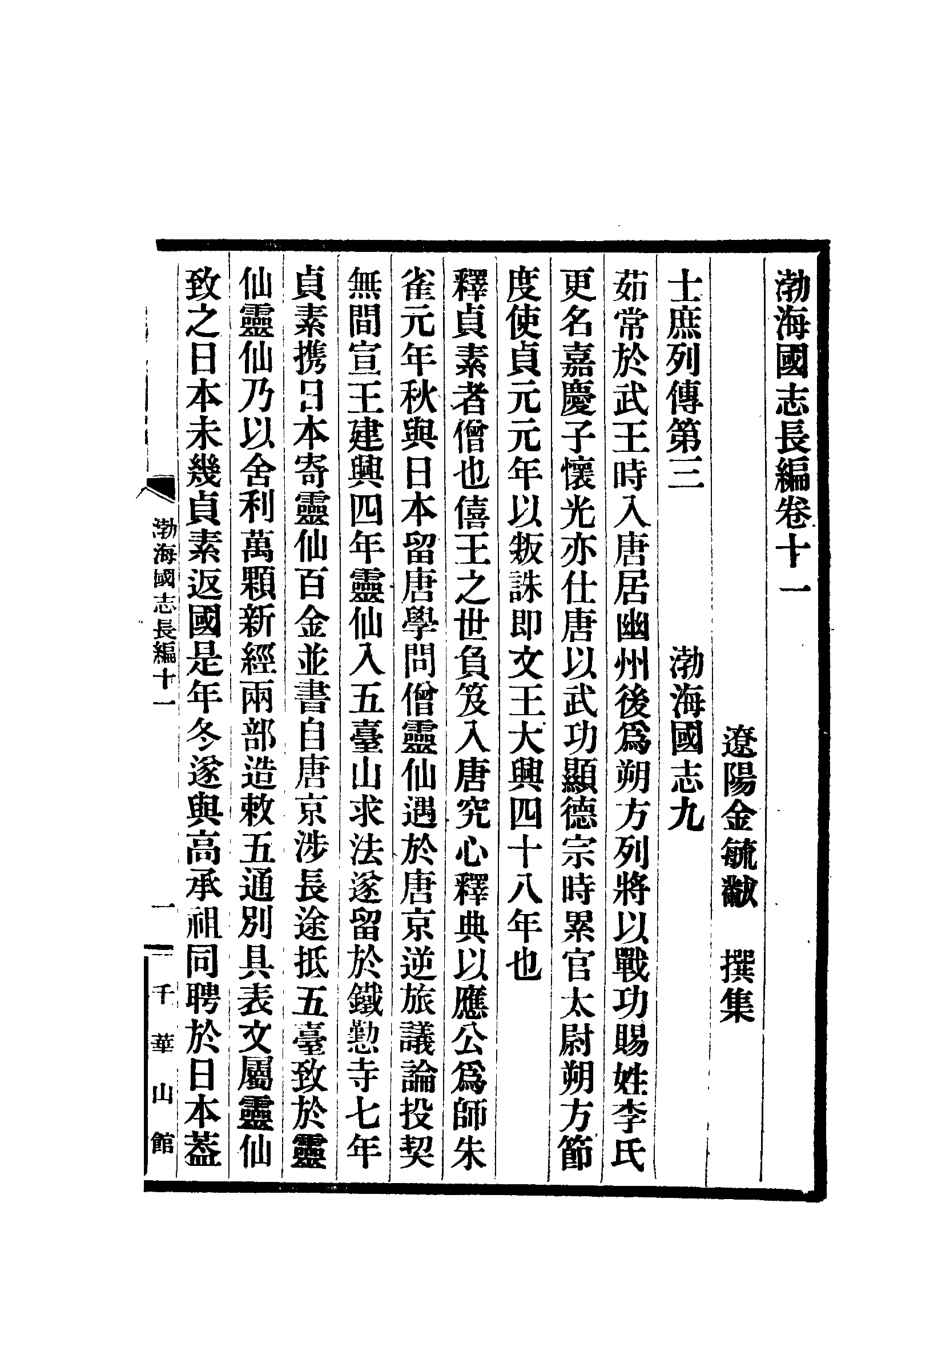 渤海國志長編卷十一
遼陽金毓黻　撰集
士庶列傳第三　渤海國志九
茹常於武王時入唐居幽州後爲朔方列將以戰功賜姓李氏
更名嘉慶子懷光亦仕唐以武功顯德宗時累官太尉朔方節
度使貞元元年以叛誅即文王大興四十八年也
釋貞素者僧也僖王之世負笈入唐究心釋典以應公爲師朱
雀元年秋與日本留唐學問僧靈仙遇於唐京逆旅議論投契
無間宣王建興四年靈仙入五臺山求法遂留於鐵懃寺七年
貞素携日本寄靈仙百金並書自唐京涉長途抵五臺致於靈
仙靈仙乃以舍利萬顆新經兩部造敕五通別具表文屬靈仙
致之日本未幾貞素返國是年冬遂與高承祖同聘於日本蓋
渤海國志長編十一
一
千華山館